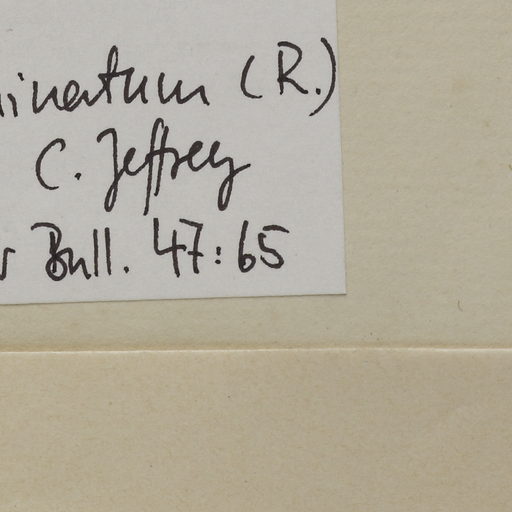 inatum (R.)
C. Jeffrey
Bull. 47:65